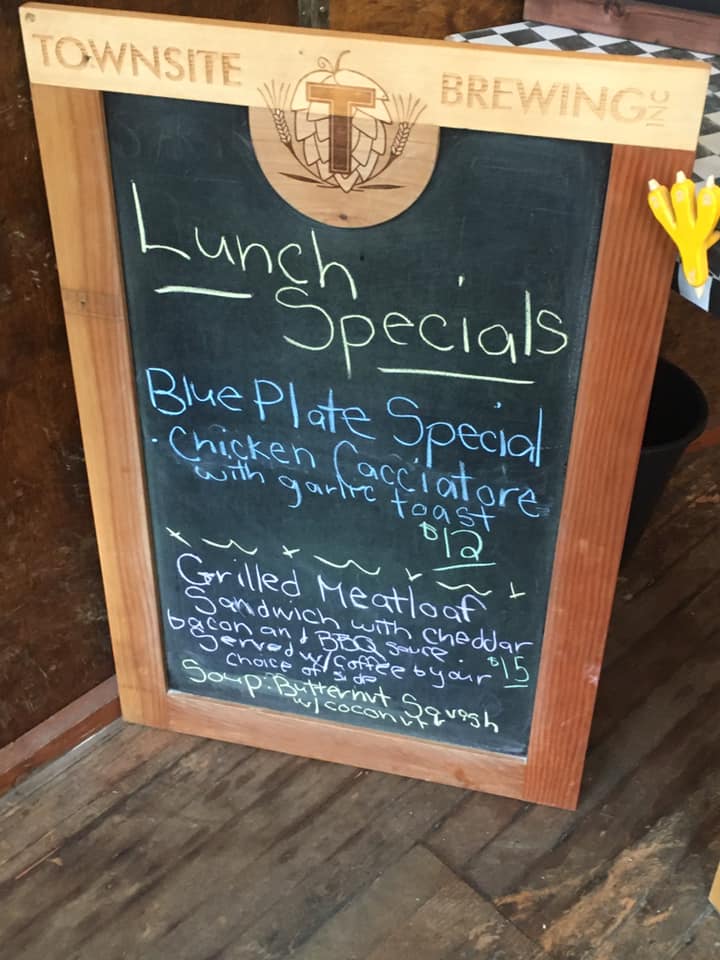 TOWNSITE T BREWING INC
Lunch
Specials
Blue Plate Special
• Chicken Cacciatore
with garlic toast
$12
Grilled Meatloaf
Sandwich with cheddar
bacon and BBQ sauce.
Served w/ coffee & your $15
choice of side
Soup: Butternut Squash
w/ coconut